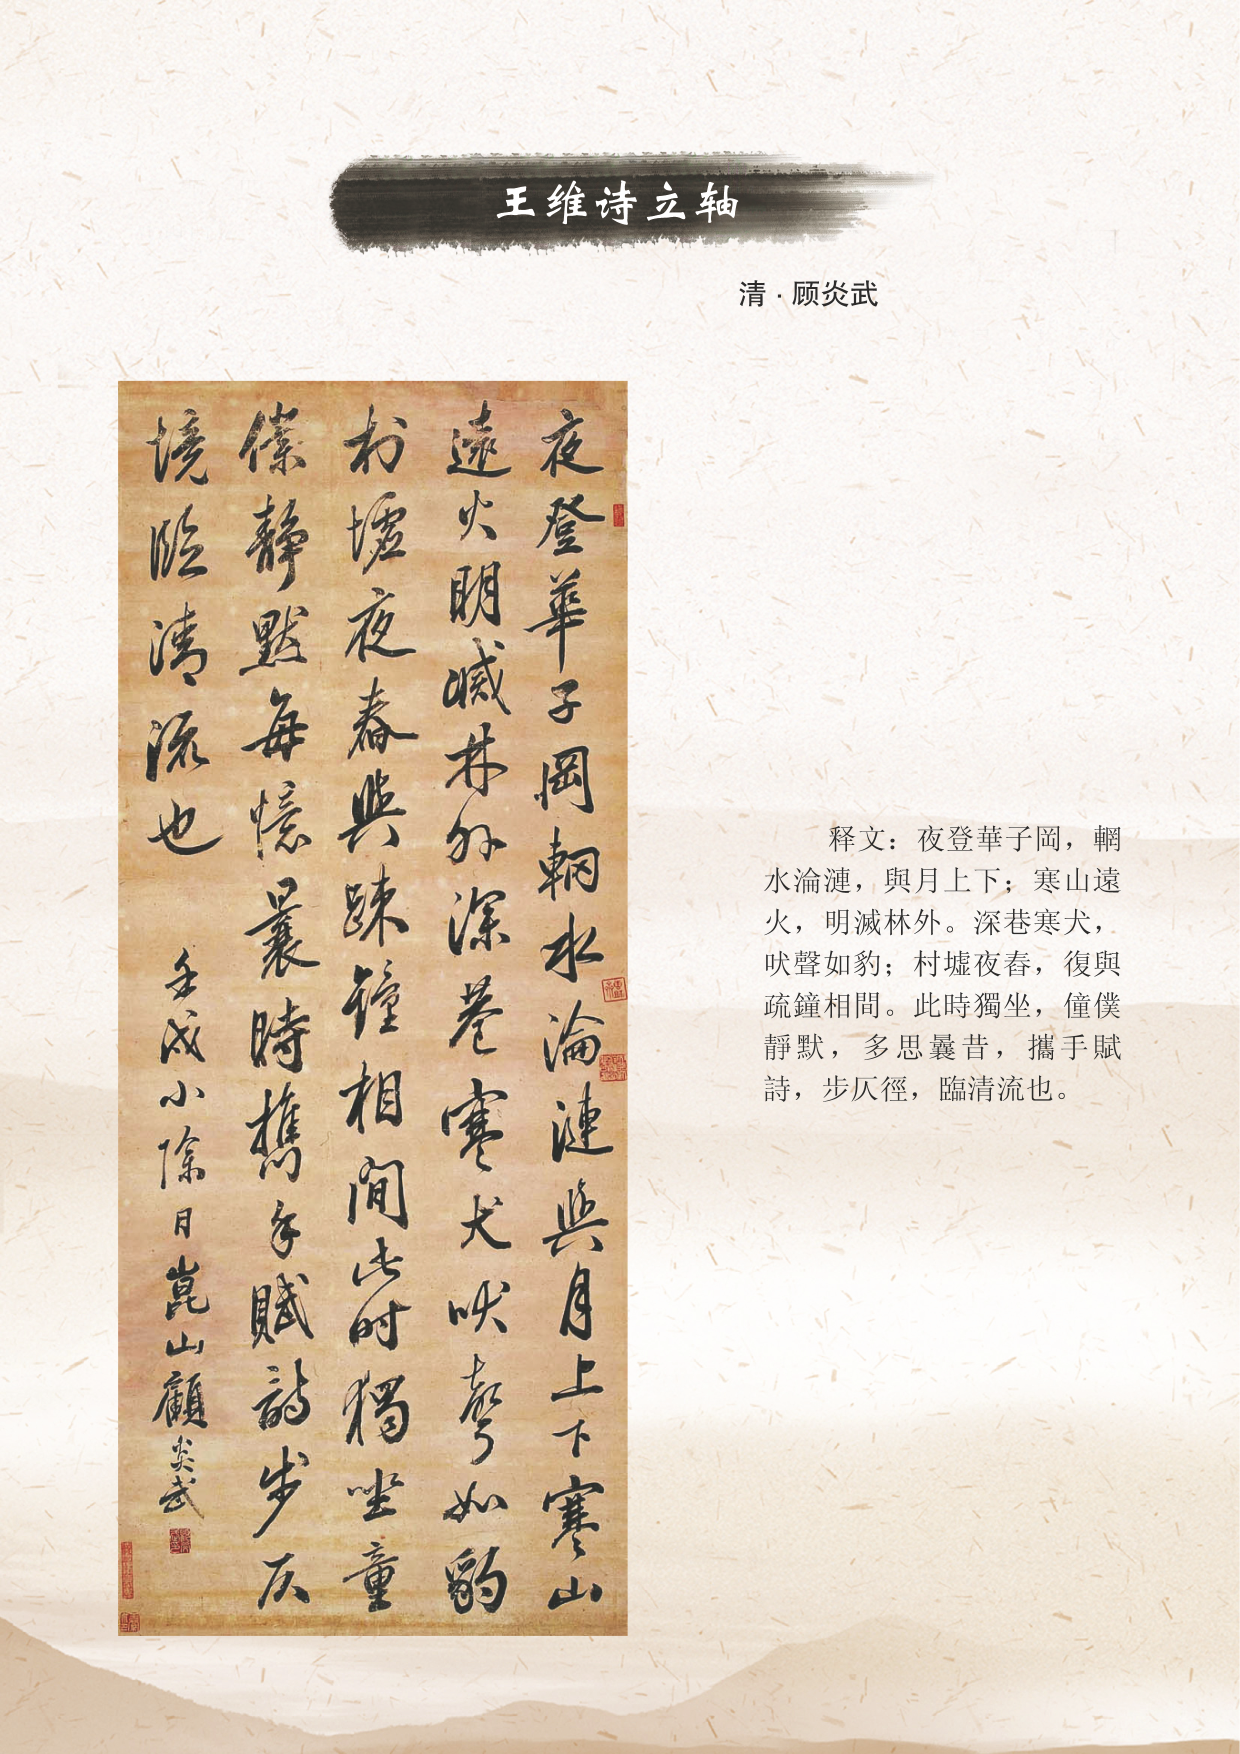 王维诗立轴
清·顾炎武
夜登華子岡輞水淪漣與月上下寒山
遠火明滅林外深巷寒犬吠聲如豹
村墟夜舂與疎鐘相間此时獨坐童
僕靜默每憶曩時攜手賦詩步仄
境臨清流也
壬戌小除日崑山顧炎武
释文：夜登華子岡，輞
水淪漣，與月上下；寒山遠
火，明滅林外。深巷寒犬，
吠聲如豹；村墟夜舂，復與
疏鐘相間。此時獨坐，僮僕
靜默，多思曩昔，攜手賦
詩，步仄徑，臨清流也。